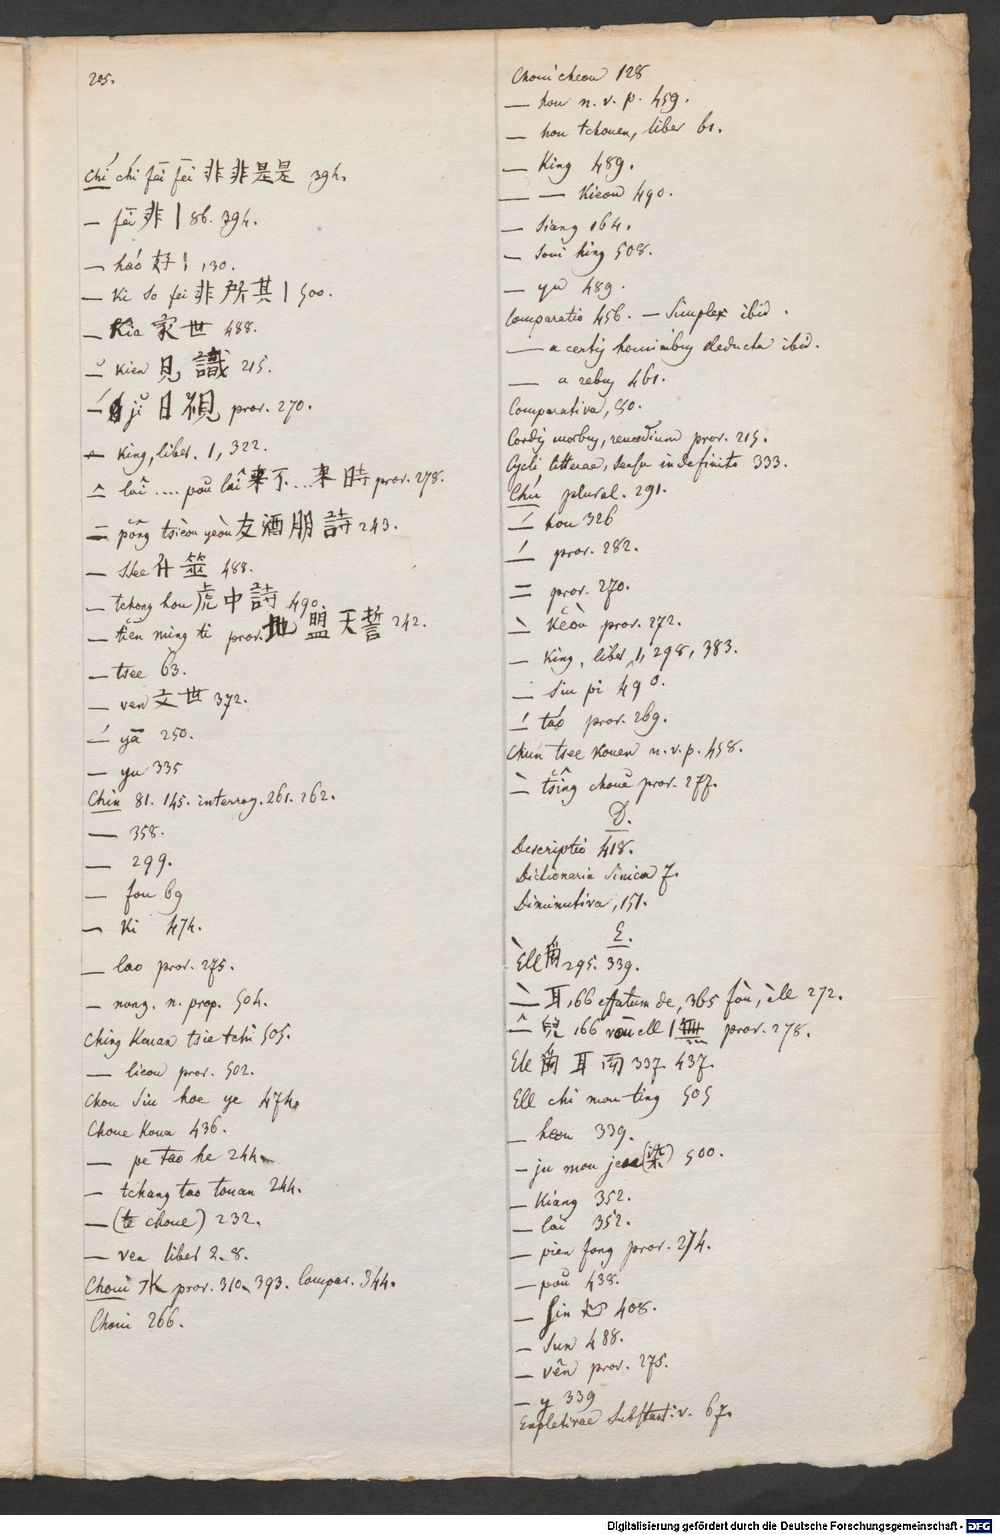 205.
Chí chí fēi fēi 非非是是 394.
— fēi 非 | 86. 394.
— háo 好 | 130.
— Ki so fei 非所其 | 500.
— Kia 家世 488.
— Kien 見識 215.
— ji 目視 prov. 270.
— King, liber. 1, 322.
— laî .... poŭ laî 來不...來時 prov. 278.
— pông tsieòu yeòu 友酒朋詩 243.
— ssee 筮 488.
— tchong hou 虎中詩 490.
— tiēn mîng ti prov. 地盟天誓 242.
— tsee 63.
— ven 文世 372.
— yā 250.
— yu 335
Chin 81. 145. interrog. 261. 262.
— 358.
— 299.
— fou 69
— Ki 474.
— lao prov. 275.
— nong. n. prop. 504.
Ching Kouan tsie tchi 505.
— lieou prov. 502.
Chou siu hoe ye 474.
Choue Koua 436.
— pe tao he 244.
— tchang tao touan 244.
— (te choue) 232.
— ven liber 2. 8.
Choui 水 prov. 310. 393. Compar. 344.
Choui 266.
Choui cheou 128
— hou n. v. p. 459.
— hou tchouen, liber 61.
— King 489.
— — Kieou 490.
— siang 164.
— soui hing 508.
— yu 489.
Comparatio 456. — Simplex ibid.
— a certis hominibus deducta ibid.
— a rebus 461.
Comparativa, 50.
Cordis morbus, remedium prov. 215.
Cycli litterae, sensu indefinito 333.
Chu plural. 291.
— hou 326
— prov. 282.
= prov. 270.
— Keòu prov. 272.
— King, liber 1, 298, 383.
— siu pi 490.
— táo prov. 269.
Chun tsee Kouen n. v. p. 458.
— tsîng chouĕ prov. 277.
D.
Descriptio 418.
Dictionaria Sinica 7.
Diminutiva, 151.
E.
Ell 295. 339.
— 耳, 166 effatum de, 365 foù, èll 272.
— 166 voûell | 無 prov. 278.
Ell 耳而 337. 437.
Ell chi mou ting 505
— heou 339.
— ju mou 500.
— Kiang 352.
— laî 352.
— pien fong prov. 274.
— poŭ 438.
— sin 408.
— sun 488.
— vên prov. 275.
— y 339
Expletivae Substantiv. 67.
Digitalisierung gefördert durch die Deutsche Forschungsgemeinschaft - DFG